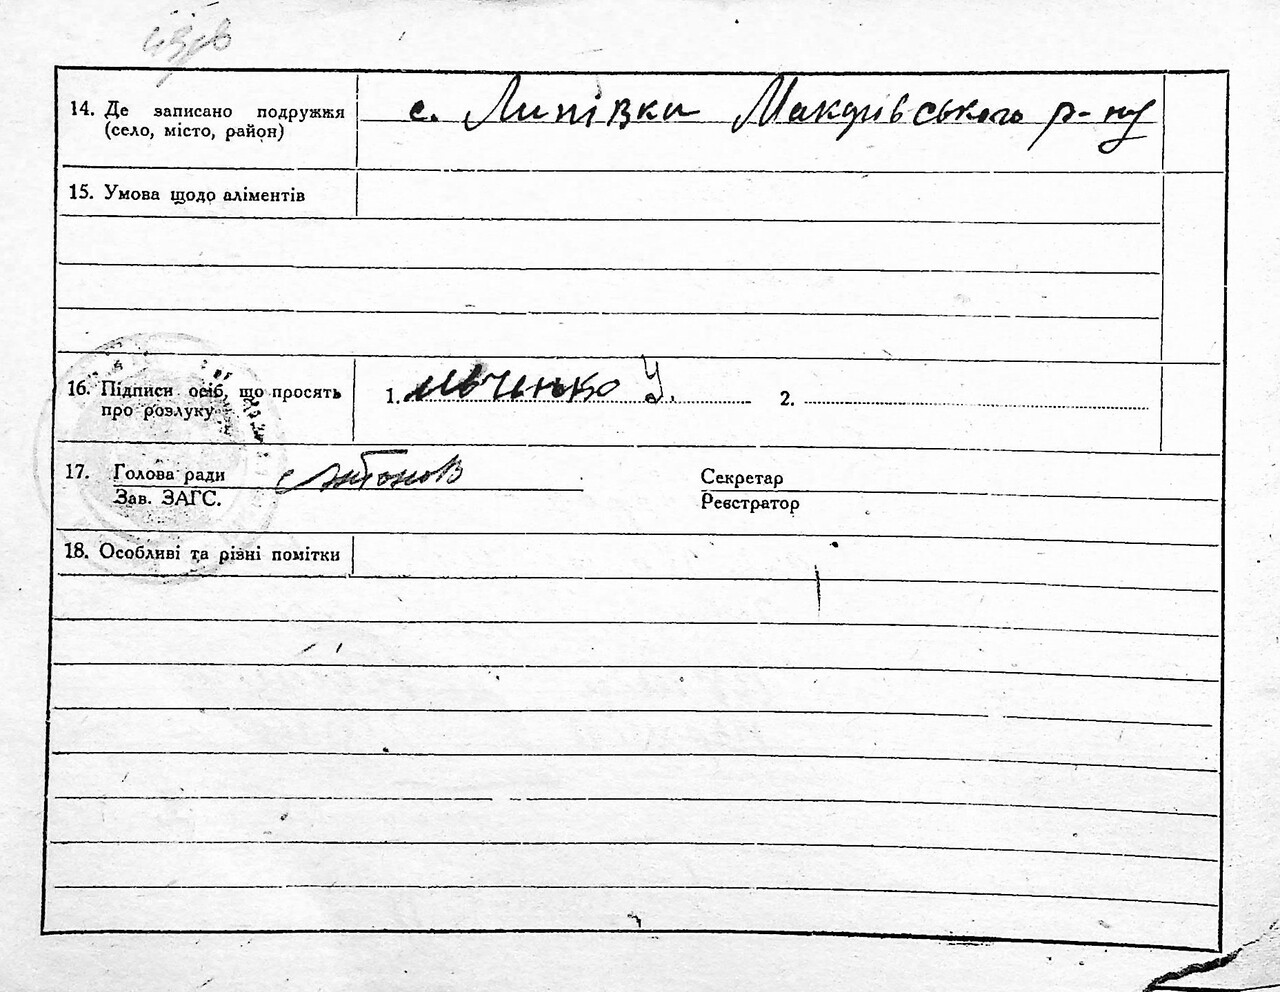 14. Де записано подружжя
(село, місто, район)
с. Липівка Макарівського р-ну
15. Умова щодо аліментів
16. Підписи осіб, що просять
про розлуку
1. 2.
17. Голова ради
Зав. ЗАГС.
Антонов
Секретар
Реєстратор
18. Особливі та різні помітки